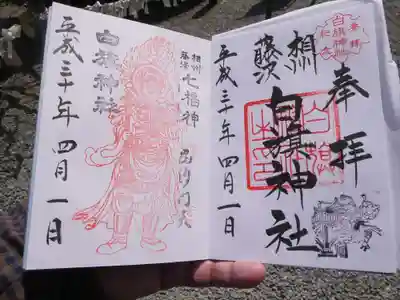 奉拝
相州
藤沢
白旗神社
平成三十年四月一日
白旗神社
相州
藤沢
七福神
毘沙門天
白旗神社
平成三十年四月一日